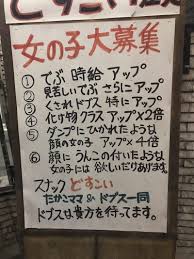 どすこい
女の子大募集
① でぶ 時給 アップ
② 見苦しいでぶ さらにアップ
③ くされドブス 特にアップ
④ 化け物クラス アップ×2倍
⑤ ダンプにひかれたような
顔の女の子 アップ×4倍
⑥ 顔にうんこの付いたような
女の子には 欲しいだけあげます。
スナック どすこい
たかこママ & ドブス一同
ドブスは貴方を待ってます。